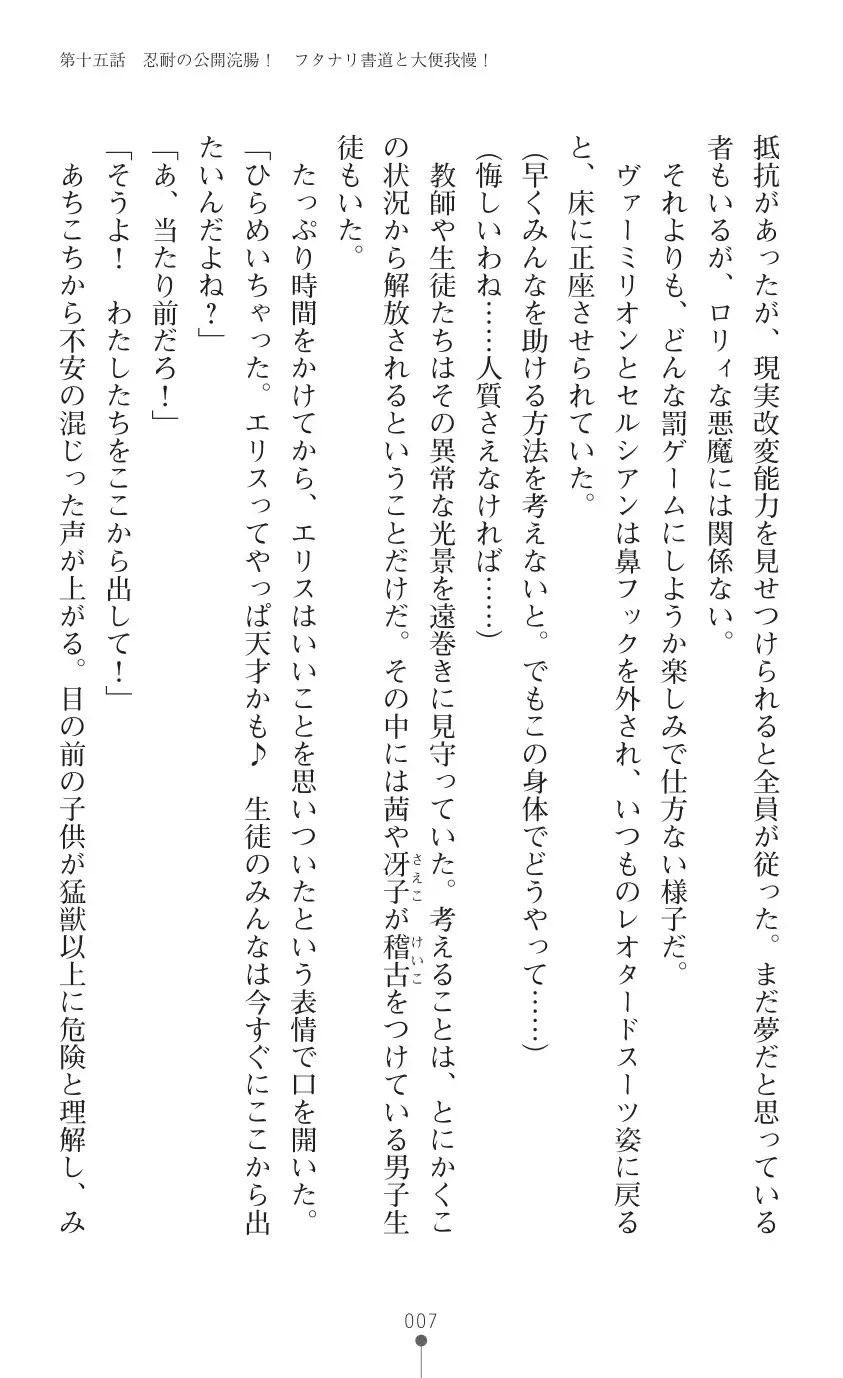 第十五話　忍耐の公開浣腸！　フタナリ書道と大便我慢！
抵抗があったが、現実改変能力を見せつけられると全員が従った。まだ夢だと思っている
者もいるが、ロリィな悪魔には関係ない。
それよりも、どんな罰ゲームにしようか楽しみで仕方ない様子だ。
ヴァーミリオンとセルシアンは鼻フックを外され、いつものレオタードスーツ姿に戻る
と、床に正座させられていた。
（早くみんなを助ける方法を考えないと。でもこの身体でどうやって……）
（悔しいわね……人質さえなければ……）
教師や生徒たちはその異常な光景を遠巻きに見守っていた。考えることは、とにかくこ
の状況から解放されるということだけだ。その中には茜や冴子が稽古をつけている男子生
さえこ
けいこ
徒もいた。
たっぷり時間をかけてから、エリスはいいことを思いついたという表情で口を開いた。
「ひらめいちゃった。エリスってやっぱ天才かも♪　生徒のみんなは今すぐにここから出
たいんだよね？」
「あ、当たり前だろ！」
「そうよ！　わたしたちをここから出して！」
あちこちから不安の混じった声が上がる。目の前の子供が猛獣以上に危険と理解し、み
007